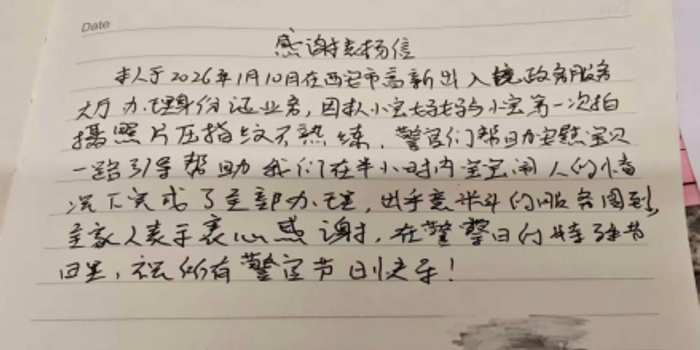 Date
感谢表扬信
本人于2026年1月10日在西安市高新出入境政务服务
大厅办理身份证业务,因本人小宝妈妈与小宝第一次拍
摄照片压指纹不熟练,警官们帮助安慰宝贝
一路引导帮助我们在半小时内宝宝闹人的情
况下完成了全部办理,出乎意料的服务周到,
全家人表示衷心感谢,在警察日的特殊节
日里,祝所有警官节日快乐!